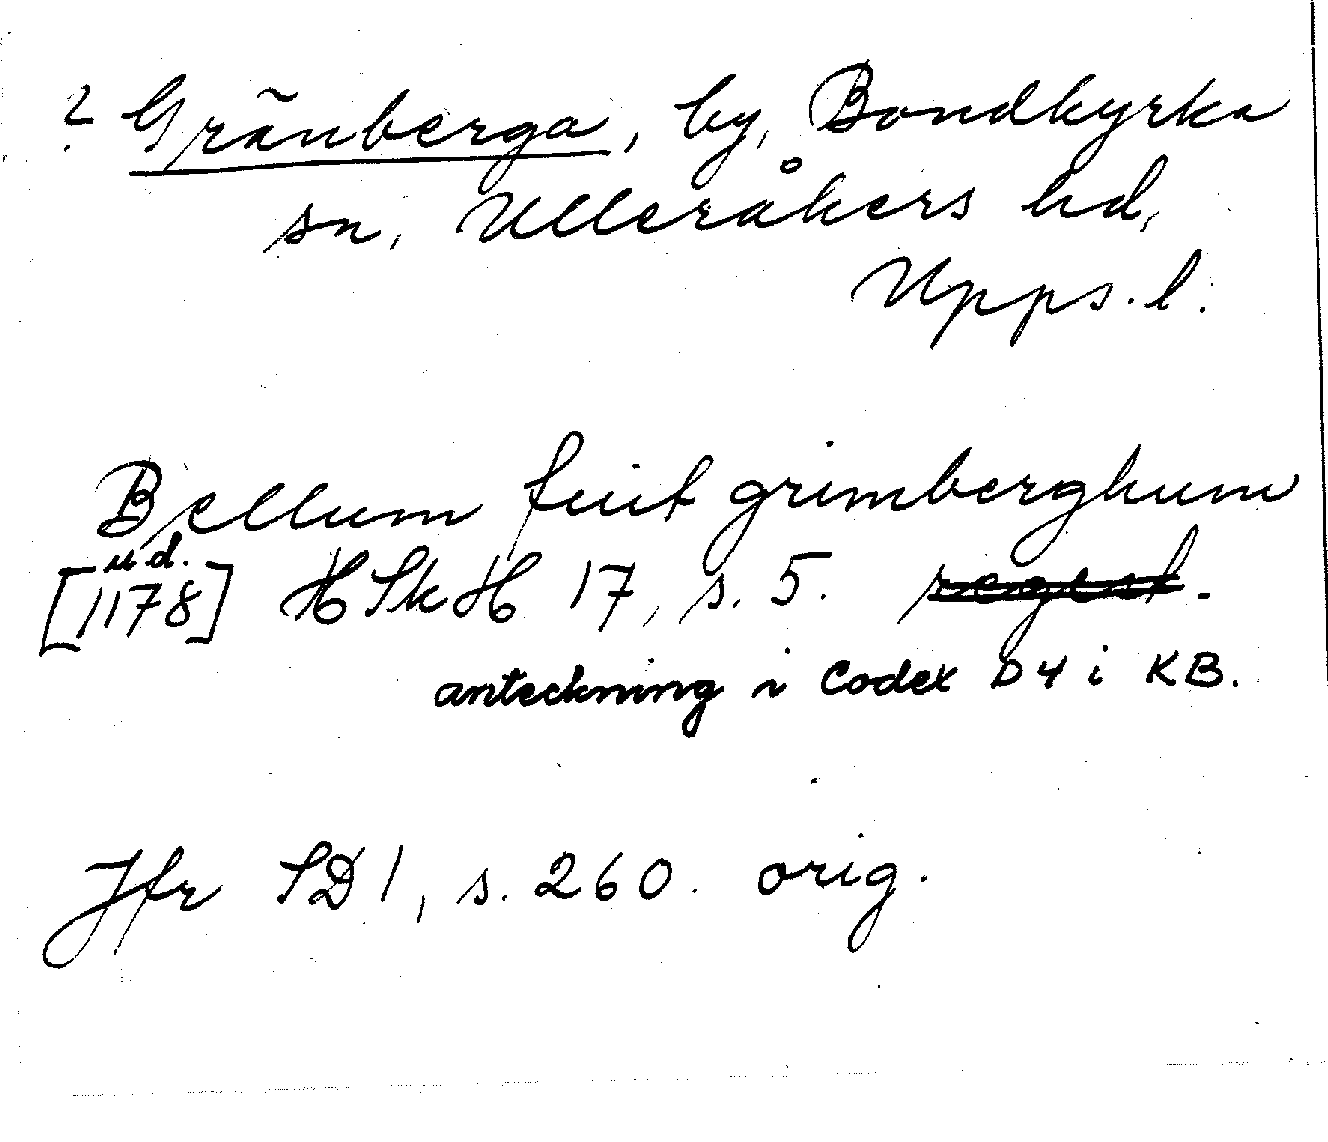 ? Gränberga, by, Bondkyrka
sn, Ulleråkers hd,
Upps. l.
Bellum fuit grimberghum
u d.
[1178] HSkH 17, s. 5. regest.
anteckning i Codex D4 i KB.
Jfr SD 1, s. 260. orig.